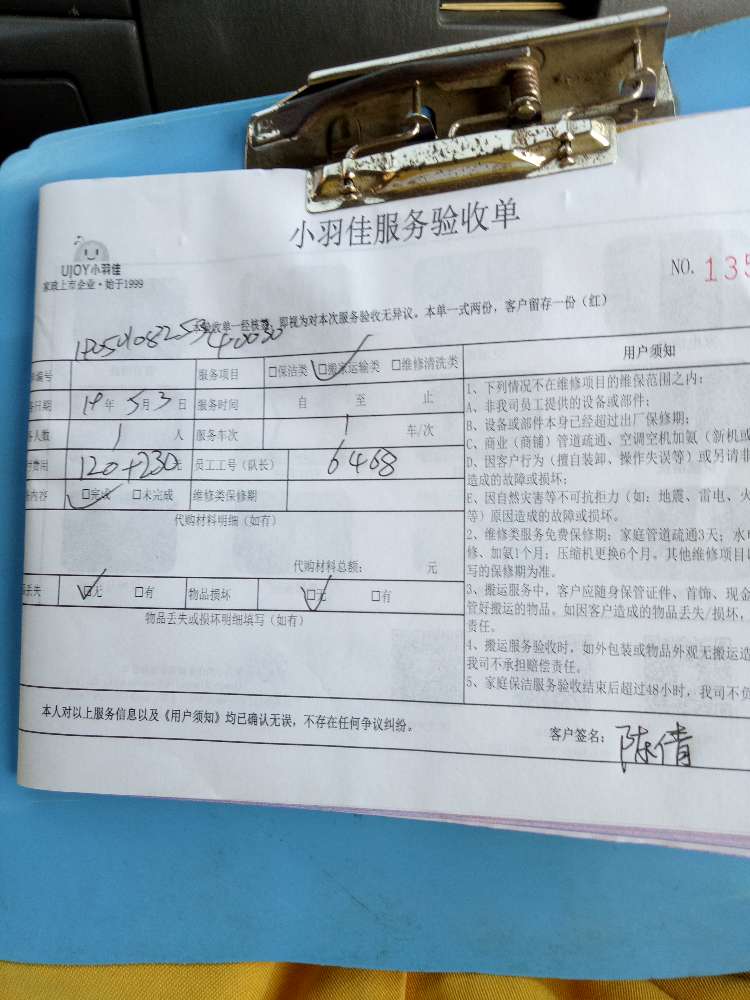 小羽佳服务验收单
UJOY小羽佳
家政上市企业·始于1999
NO. 135
本验收单一经核签，即视为对本次服务验收无异议。本单一式两份，客户留存一份（红）
编号 服务项目 □保洁类 □搬家运输类 □维修清洗类
日期 19年5月3日 服务时间 自 至 止
人数 1 人 服务车次 1 车/次
费用 120+230元 员工工号（队长） 6468
内容 □完成 □未完成 维修类保修期
代购材料明细（如有）
代购材料总额： 元
丢失 □无 □有 物品损坏 □无 □有
物品丢失或损坏明细填写（如有）
用户须知
1、下列情况不在维修项目的维保范围之内：
A、非我司员工提供的设备或部件；
B、设备或部件本身已经超过出厂保修期；
C、商业（商铺）管道疏通、空调空机加氨（新机或
D、因客户行为（擅自装卸、操作失误等）或另请非
造成的故障或损坏；
E、因自然灾害等不可抗拒力（如：地震、雷电、火
等）原因造成的故障或损坏。
2、维修类服务免费保修期：家庭管道疏通3天；水电
修、加氨1个月；压缩机更换6个月。其他维修项目以
写的保修期为准。
3、搬运服务中，客户应随身保管证件、首饰、现金
管好搬运的物品。如因客户造成的物品丢失/损坏，
责任。
4、搬运服务验收时，如外包装或物品外观无搬运造
我司不承担赔偿责任。
5、家庭保洁服务验收结束后超过48小时，我司不负
本人对以上服务信息以及《用户须知》均已确认无误，不存在任何争议纠纷。
客户签名：陈倩